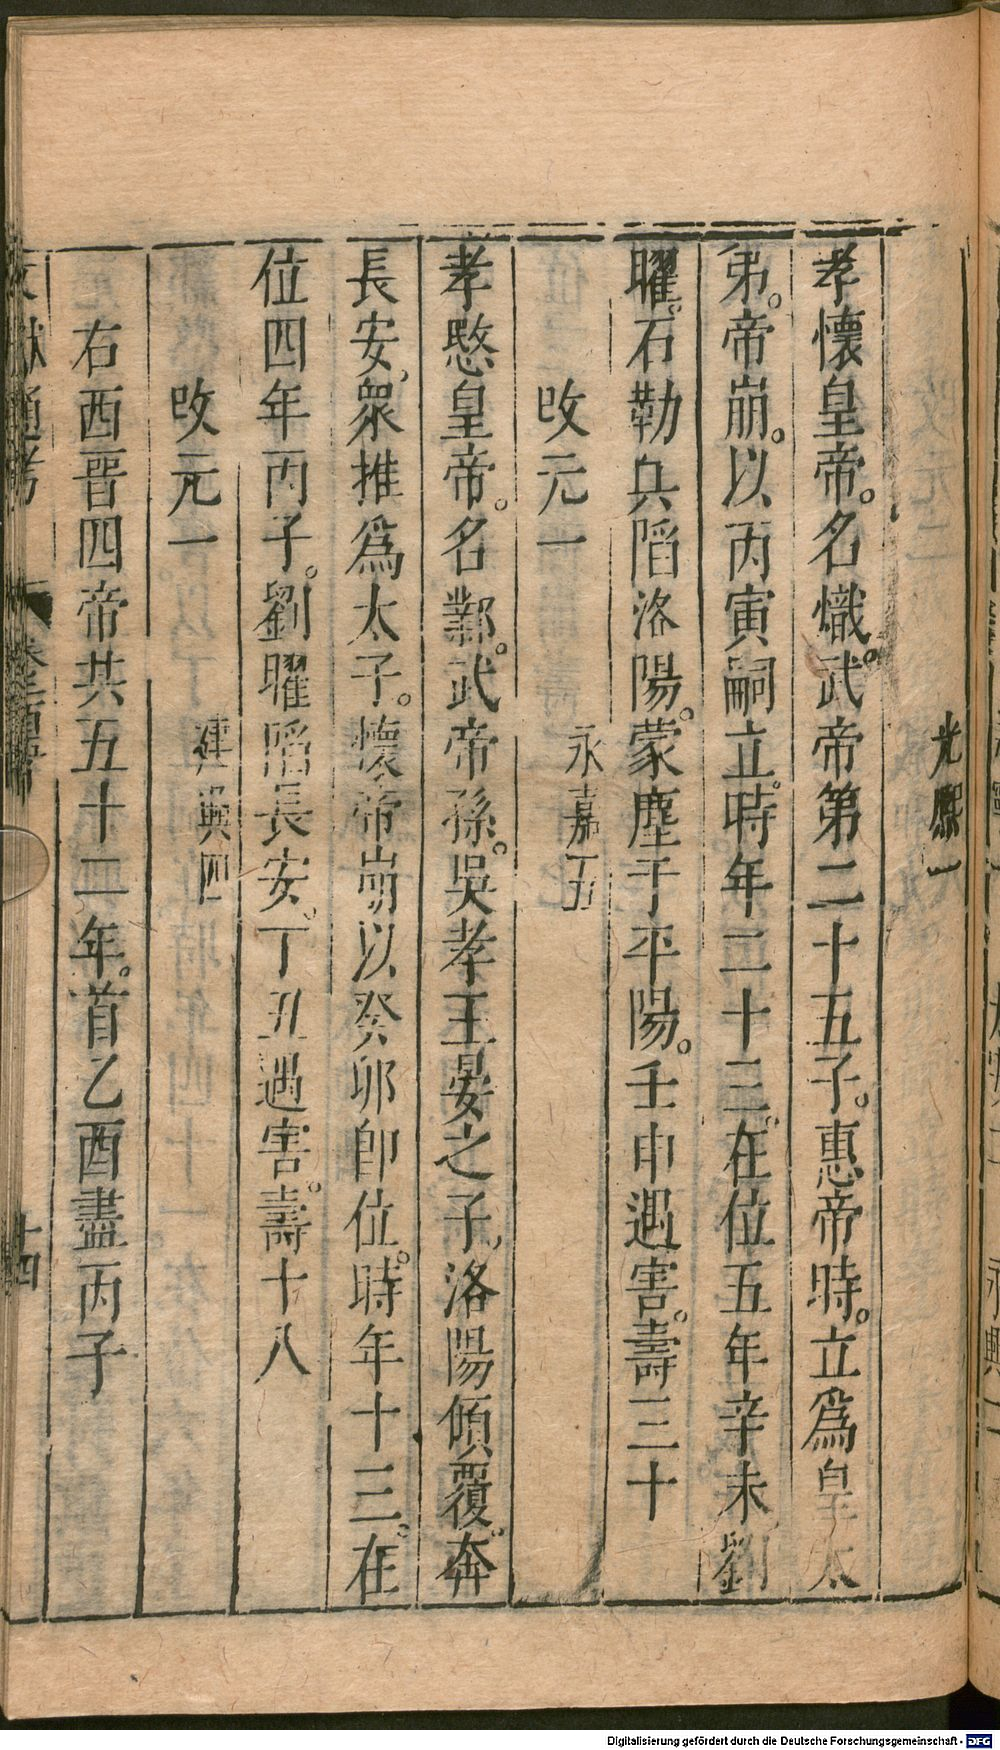 光熙一
孝懷皇帝。名熾。武帝第二十五子。惠帝時。立爲皇太
弟。帝崩。以丙寅嗣立。時年二十三。在位五年辛未劉
曜。石勒兵陷洛陽。蒙塵于平陽。壬申遇害。壽三十
改元一
永嘉五
孝愍皇帝。名鄴。武帝孫。吳孝王晏之子。洛陽傾覆。奔
長安。衆推爲太子。懷帝崩以癸卯卽位。時年十三。在
位四年丙子。劉曜陷長安。丁丑遇害。壽十八
改元一
建興四
右西晋四帝共五十二年。首乙酉盡丙子
文獻通考
十四
Digitalisierung gefördert durch die Deutsche Forschungsgemeinschaft - DFG